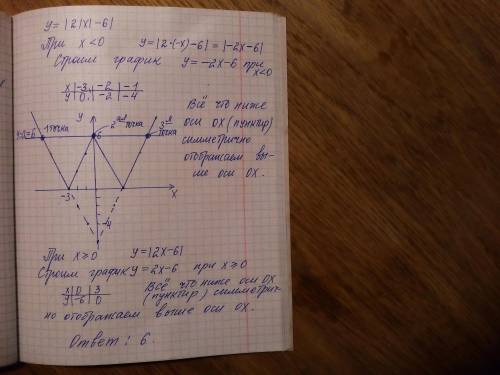 y = |2|x| -6|
При x < 0 y = |2·(-x) -6| = |-2x-6|
Строим график y = -2x-6 при x<0
x | -3 | -2 | -1
y | 0 | -2 | -4
Всё что ниже
оси OX (пунктир)
симметрично
отображаем вы-
ше оси OX.
y
y=a=6
1 точка
2ая точка
3я точка
6
-3
-4
x
При x ≥ 0 y = |2x-6|
Строим график y = 2x-6 при x ≥ 0
x | 0 | 3
y | -6 | 0
Всё что ниже оси OX
(пунктир) симметрич-
но отображаем выше оси OX.
Ответ: 6.